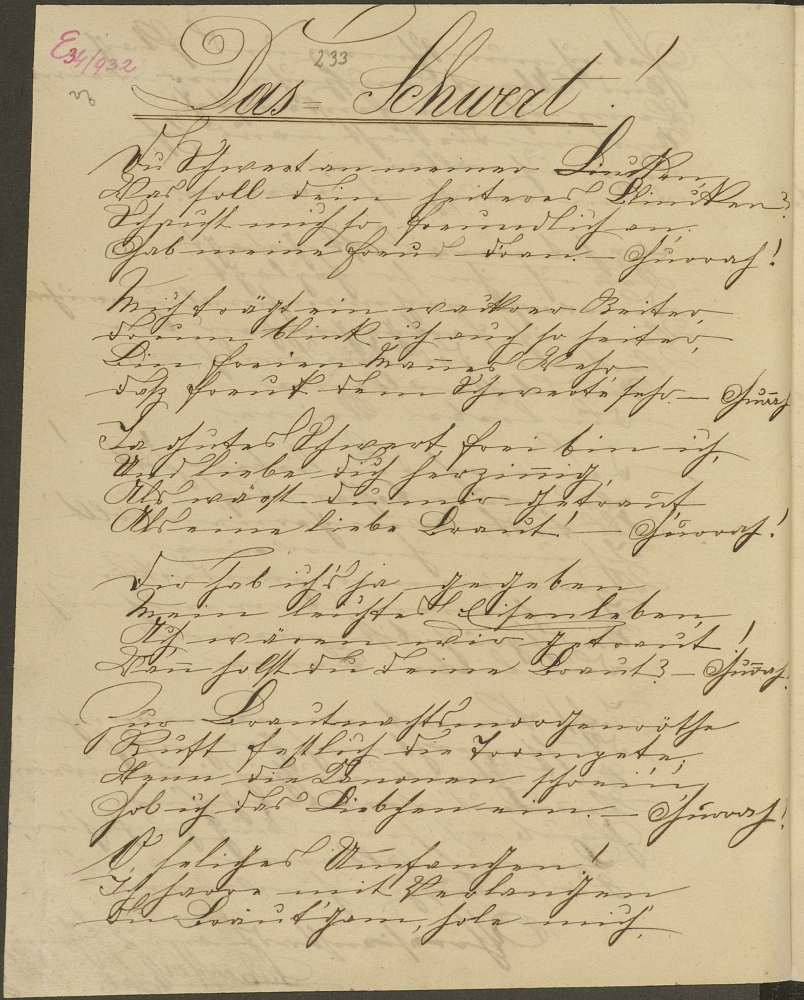 E34/932
233
Das Schwert!
Du Schwert an meiner Linken,
Was soll dein heiteres Blinken?
Schaust mich so freundlich an.
Hab meine Freud dran. — Hurrah!
Mich trägt ein wackrer Reiter
drum blink ich auch so heiter,
Bin freien Mannes Wehr
daß freut dem Schwerte sehr. — Hurrah
Ja gutes Schwert, frei bin ich,
Und liebe dich herzinnig,
Als wärst du mir getraut
Als eine liebe Braut! — Hurrah!
Dir hab ich's ja gegeben
Mein lichtes Eisenleben
Ach wären wir getraut!
Wann holst du deine Braut? — Hurrah!
Zur Brautnachtsmorgenröthe
Ruft festlich die Trompete;
Wenn die Kanonen schrein,
Hol ich das Liebchen ein. — Hurrah!
O seliges Umfangen!
Ich harre mit Verlangen
du Bräut'gam, hole mich,